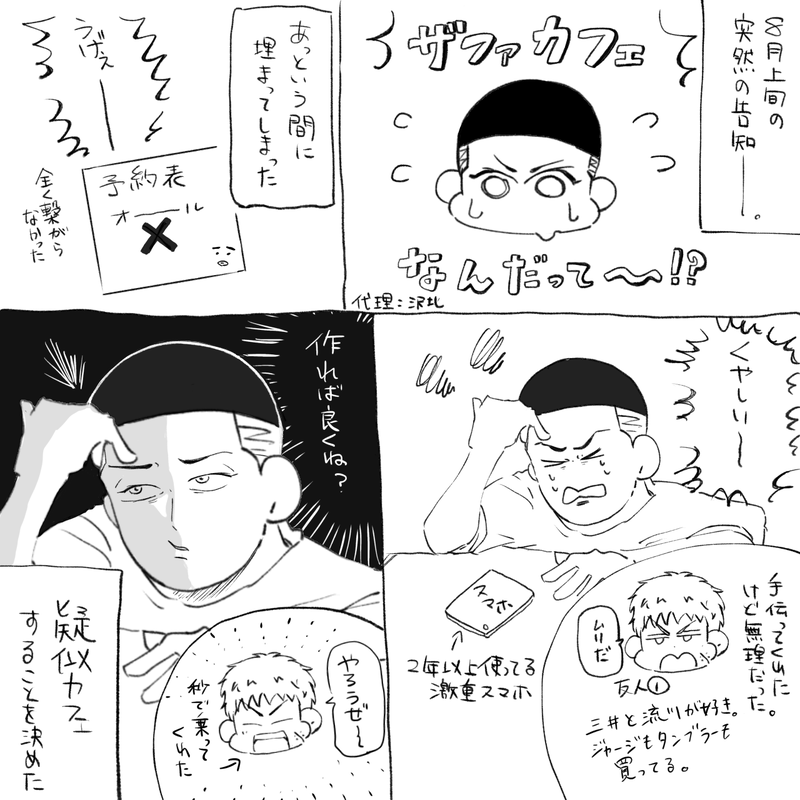 8月上旬の
突然の告知
――。
ザファカフェ
なんだって〜!?
代理:沢北
あっという間に
埋まってしまった
うげぇ
――
予約表
オール
全く繋がら
なかった
くやしい〜
スマホ
2年以上使ってる
激重スマホ
手伝ってくれた
けど無理だった。
ムリだ
友人①
三井と流川が好き。
ジャージもタンブラーも
買ってる。
作れば良くね?
やろうぜ〜
秒で乗って
くれた
疑似カフェ
することを決めた